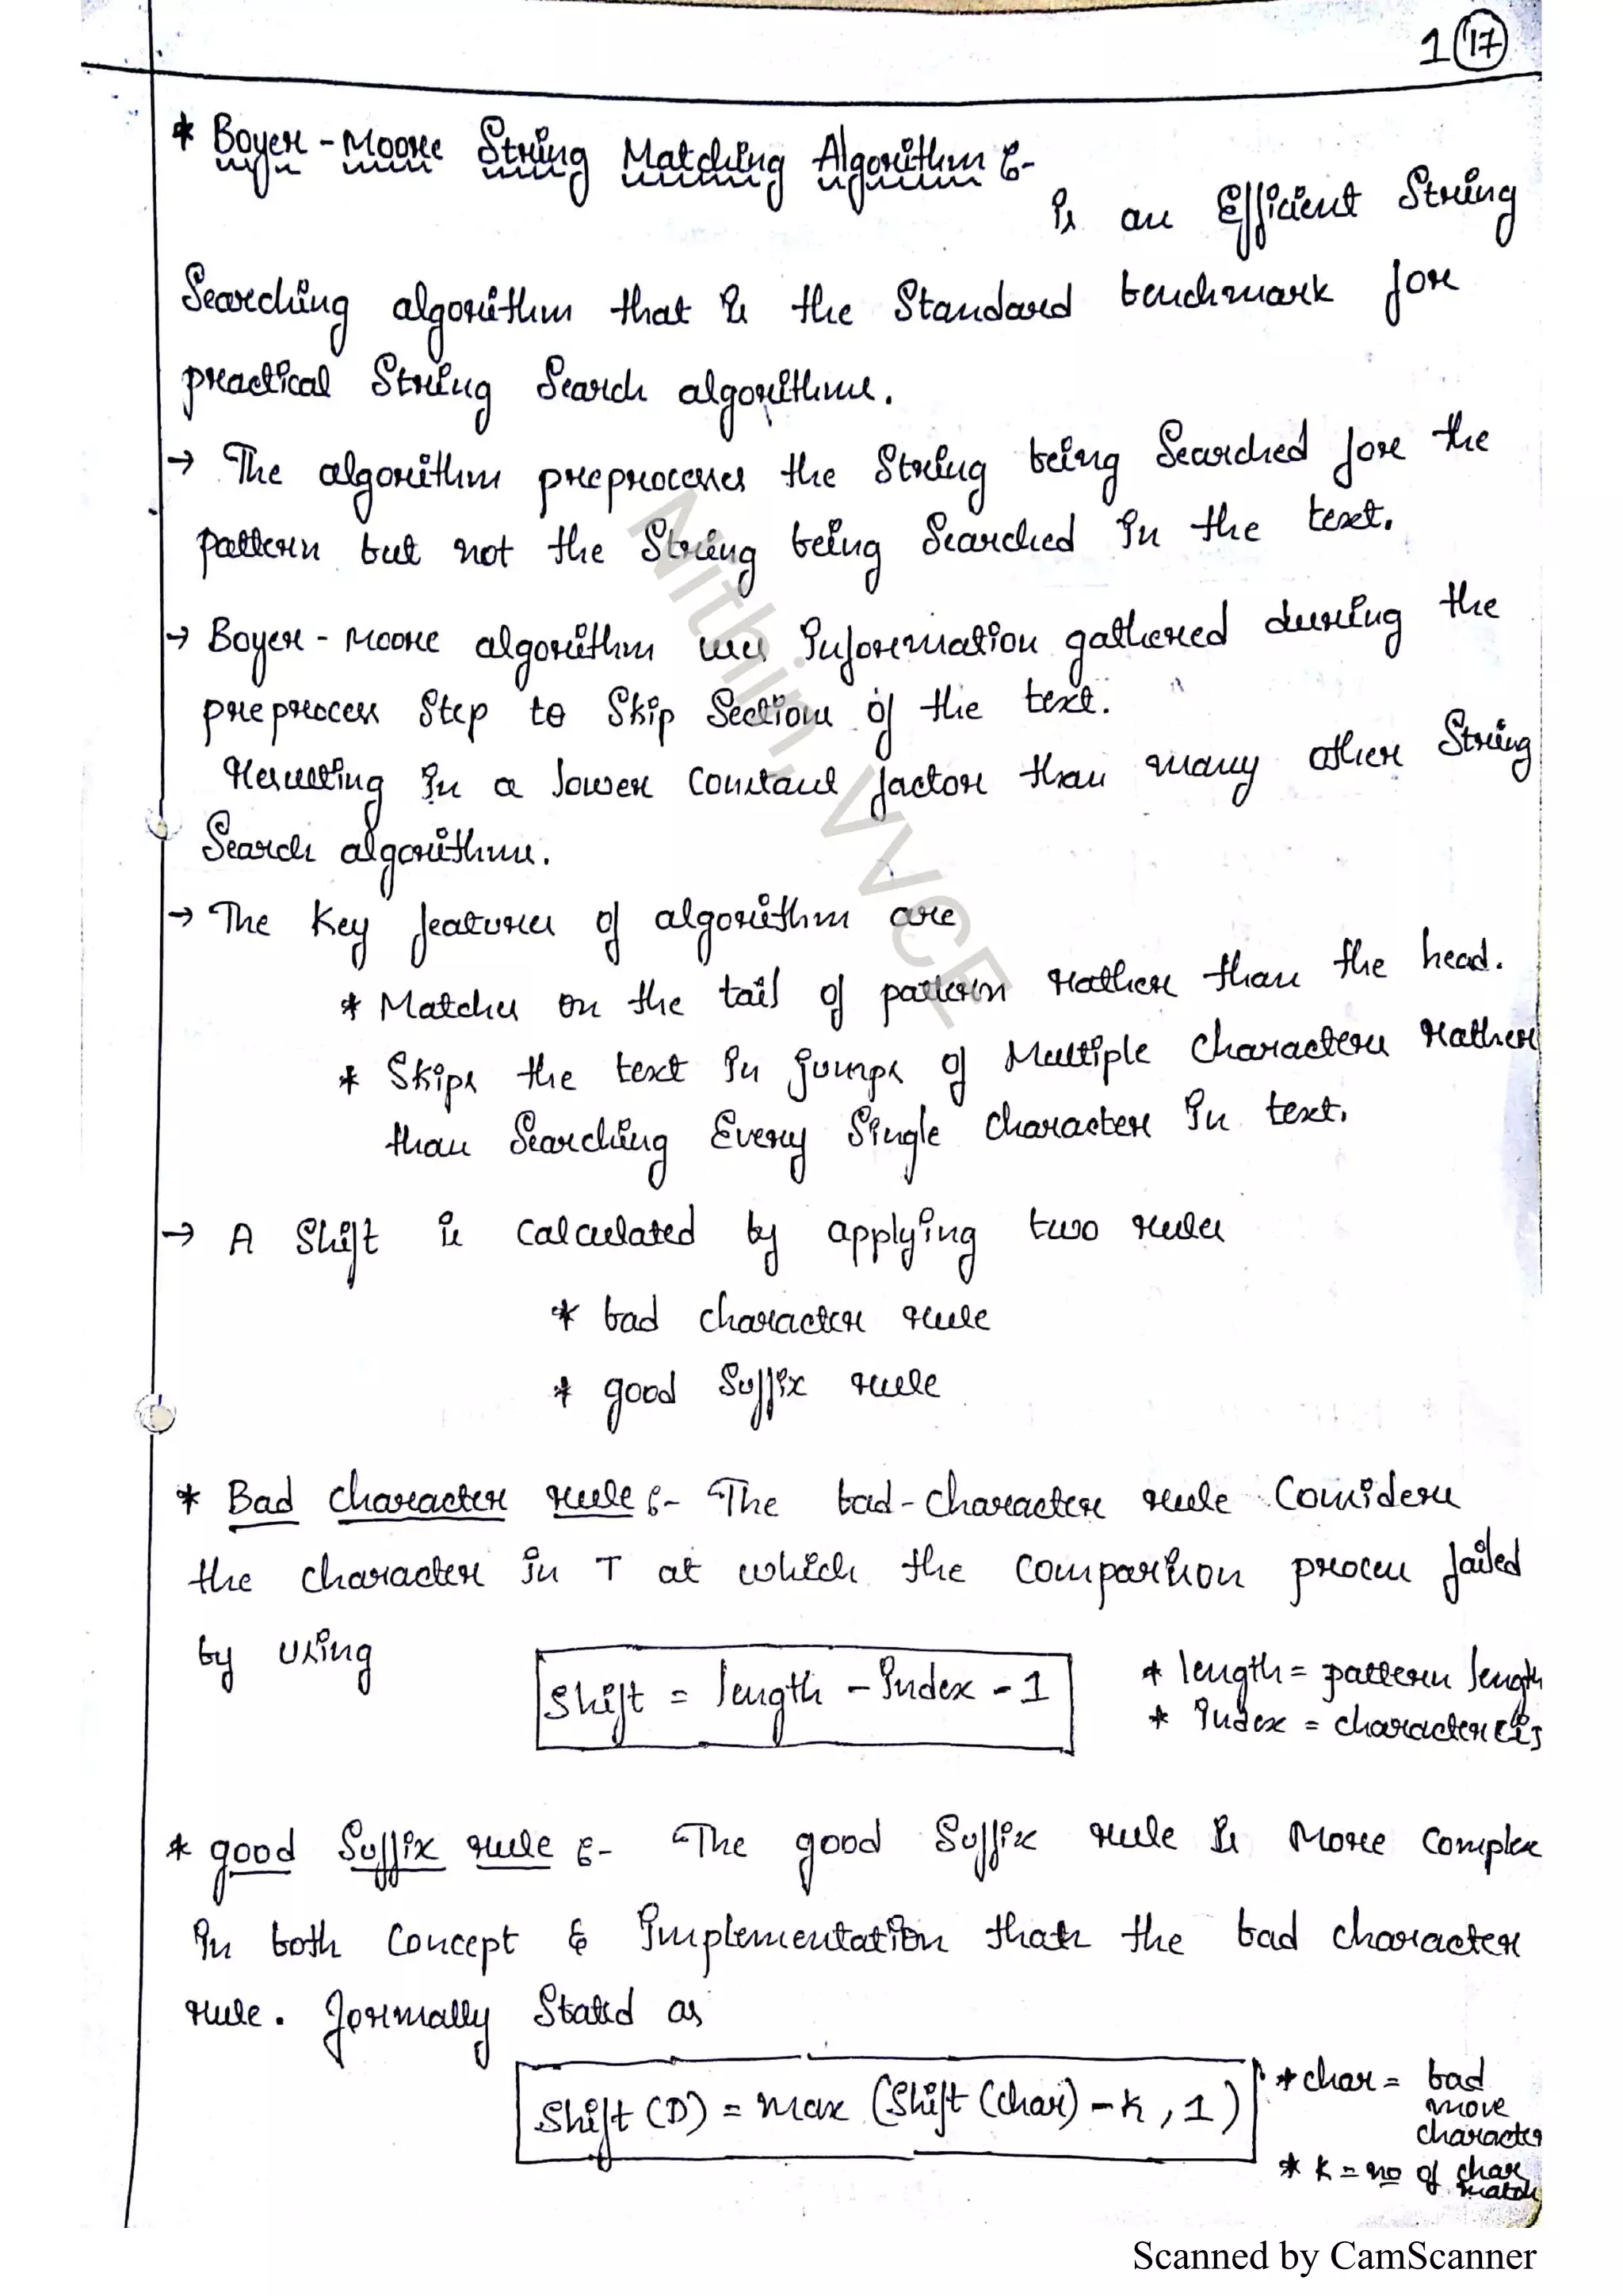 1 (17)
* Boyer - Moore String Matching Algorithm :-
is an Efficient String
Searching algorithm that is the Standard benchmark for
practical String Search algorithms.
→ The algorithm preprocesses the String being Searched for the
pattern but not the String being Searched in the text.
→ Boyer - Moore algorithm uses Information gathered during the
preprocess Step to Skip Sections of the text.
resulting in a lower Constant factor than many other String
Search algorithms.
→ The Key features of algorithm are
* Matches on the tail of pattern rather than the head.
* Skips the text in jumps of Multiple Characters rather
than Searching Every Single Character in text.
→ A Shift is Calculated by applying two rules
* bad character rule
* good Suffix rule
* Bad character rule :- The bad-character rule Considers
the character in T at which the Comparison process failed
by using
Shift = length - Index - 1
* length = pattern length
* Index = character
* good Suffix rule :- The good Suffix rule is More Complex
in both Concept & Implementation than the bad character
rule. formally Stated as
Shift (D) = max (Shift (char) - K, 1)
* char = bad
move
character
* K = no of char
match
Nithin, VVCE
Scanned by CamScanner